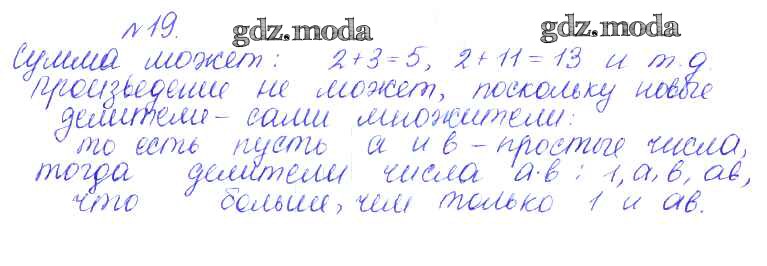 №19.
gdz.moda
gdz.moda
Сумма может: 2+3=5, 2+11=13 и т.д.
произведение не может, поскольку новые
делители - сами множители:
то есть пусть a и b - простые числа,
тогда делители числа a·b: 1, a, b, ab,
что больше, чем только 1 и ab.